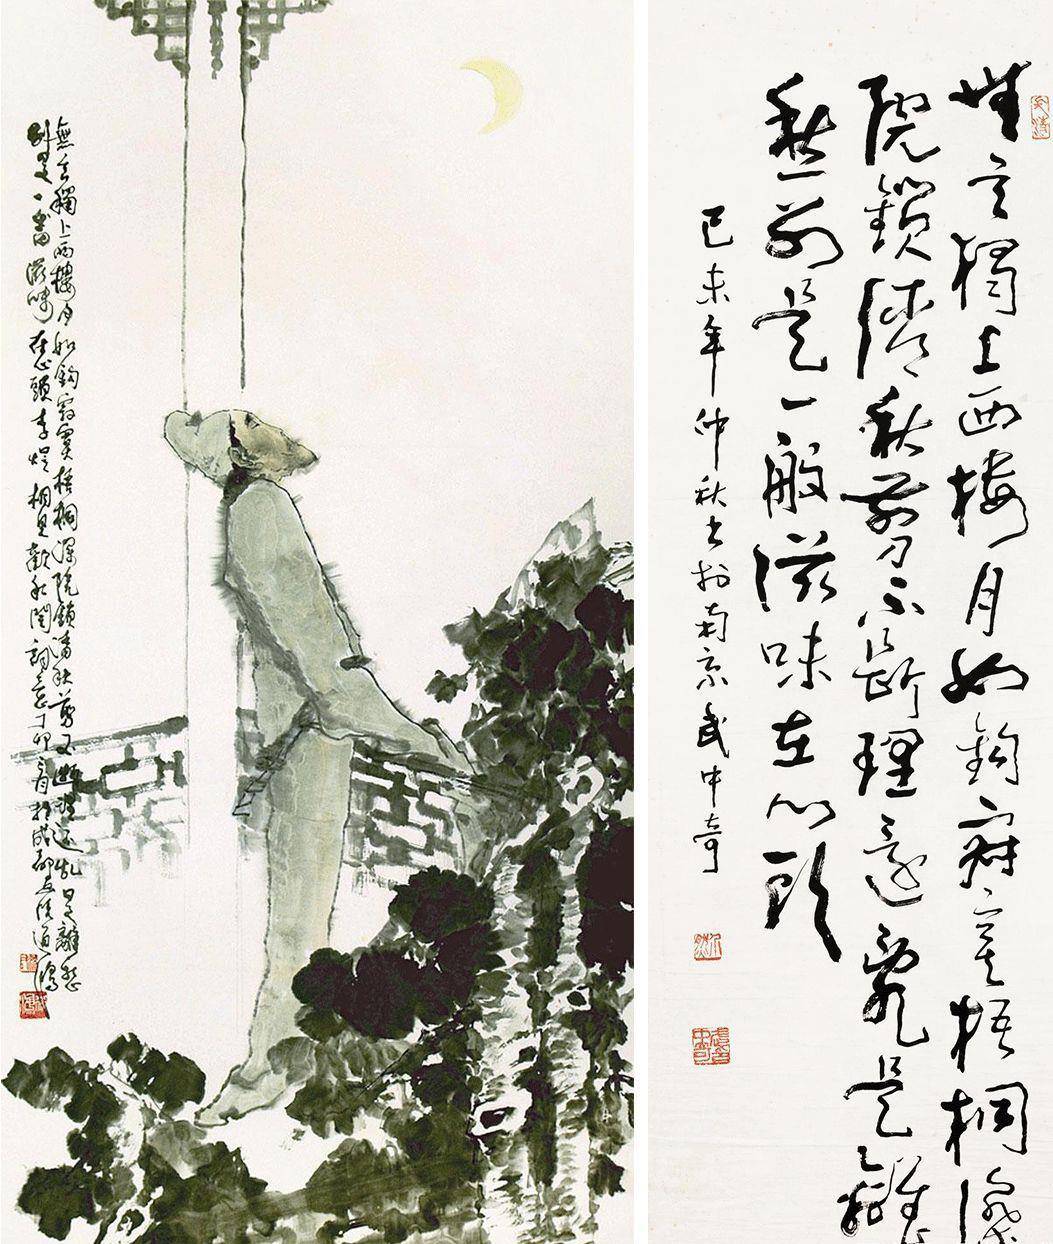 無言獨上西樓月如鉤寂寞梧桐深院鎖清秋剪不斷理還亂是離愁
別是一番滋味在心頭李煜相見歡詞意丁卯於成都道鴻
無言獨上西樓月如鉤寂寞梧桐深
院鎖清秋剪不斷理還亂是離
愁別是一般滋味在心頭
己未年仲秋書於南京武中奇